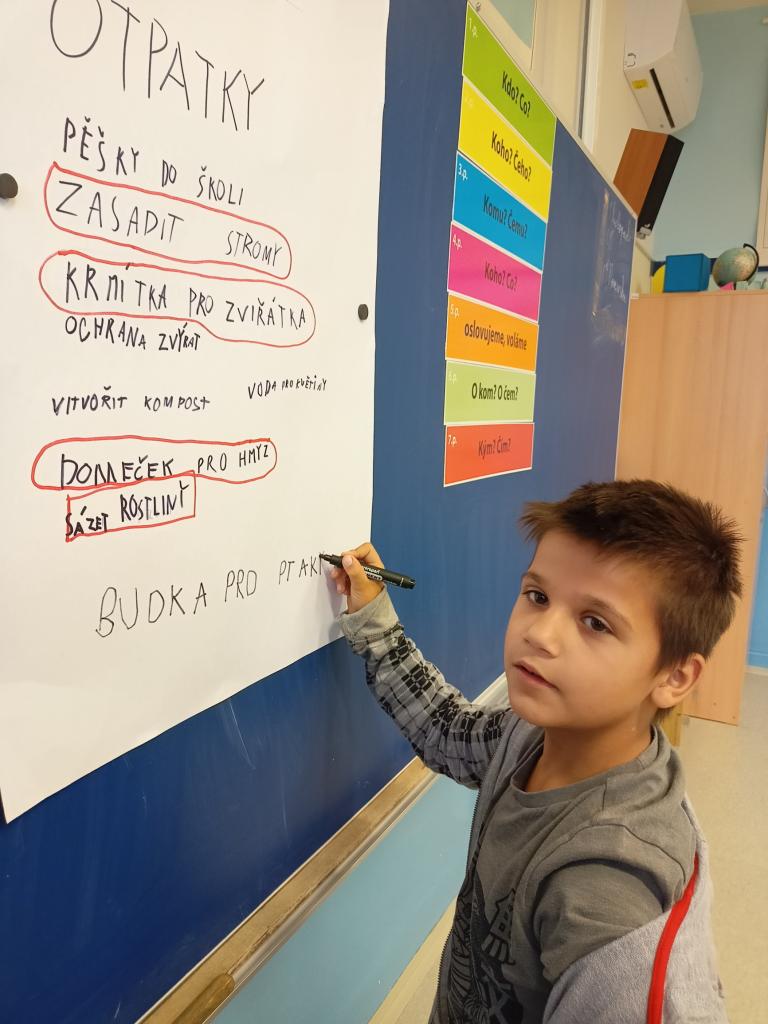 OTPATKY
PĚŠKY DO ŠKOLI
ZASADIT STROMY
KRMÍTKA PRO ZVIŘÁTKA
OCHRANA ZVÝŘAT
VODA PRO KVĚTINY
VITVOŘIT KOMPOST
DOMEČEK PRO HMYZ
SÁZET ROSTLINY
BUDKA PRO PTAK
1.p.
Kdo? Co?
Koho? Čeho?
3.p.
Komu? Čemu?
4.p.
Koho? Co?
5.p.
oslovujeme, voláme
6.p.
O kom? O čem?
7.p.
Kým? Čím?